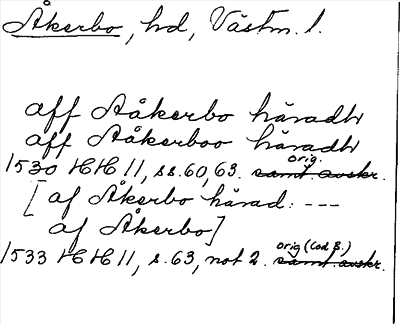 Åkerbo, hd, Västm. l.
aff Aåkerbo häradh
aff Aåkerboo häradh
orig.
1530 HH 11, ss. 60, 63. samt. avskr.
[ af Åkerbo härad: ---
af Åkerbo]
orig (Cod B.)
1533 HH 11, s. 63, not 2. samt. avskr.